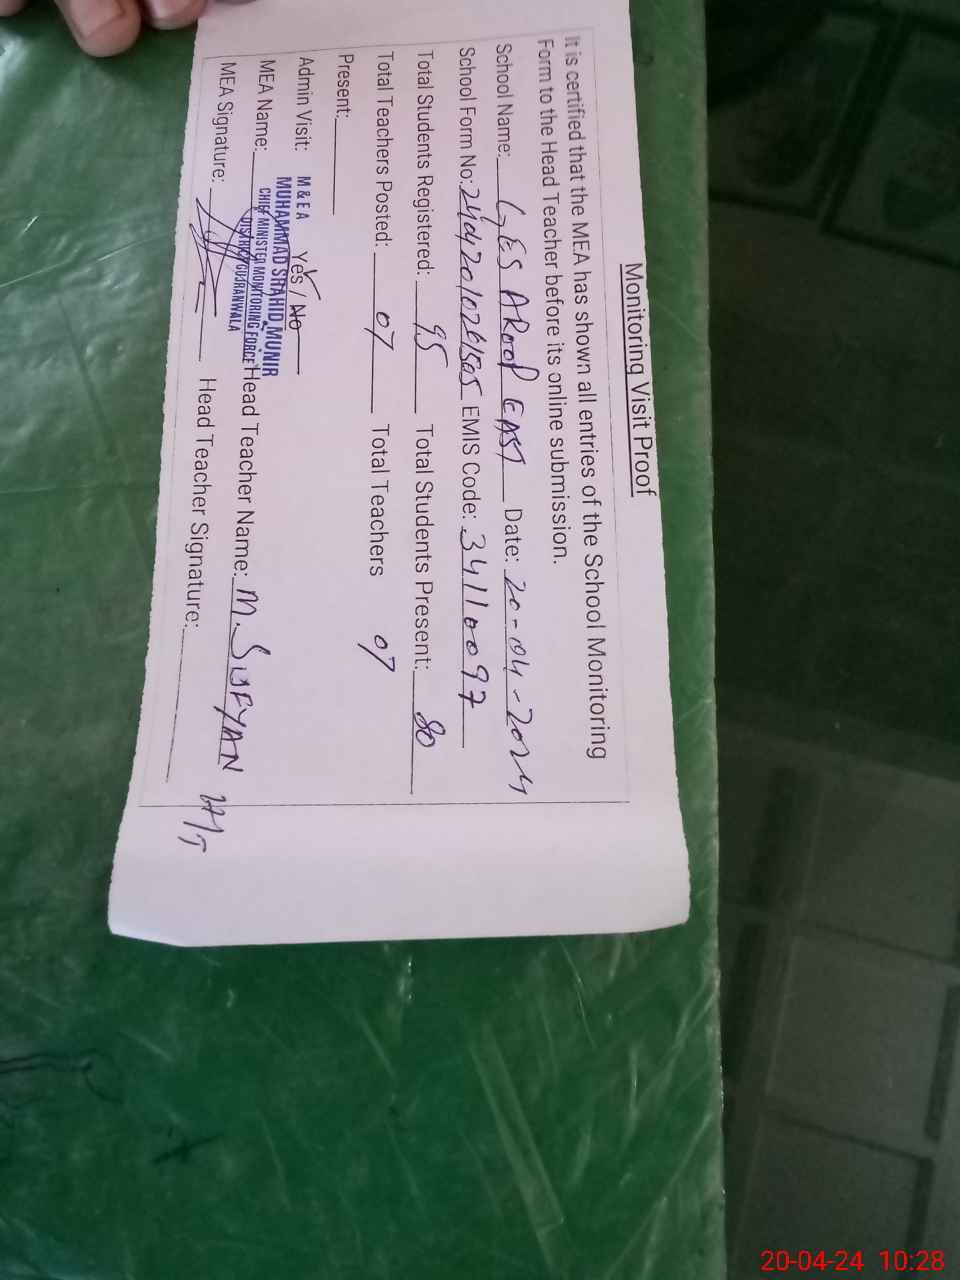 Monitoring Visit Proof
It is certified that the MEA has shown all entries of the School Monitoring
Form to the Head Teacher before its online submission.
School Name: GES AROOP EAST Date: 20-04-2024
School Form No: EMIS Code: 34110097
Total Students Registered: 95 Total Students Present: 80
Total Teachers Posted: 07 Total Teachers 07
Present:
Admin Visit: Yes / No
M & E A
MUHAMMAD SHAHID MUNIR
CHIEF MINISTER MONITORING FORCE
DISTRICT GUJRANWALA
MEA Name: Head Teacher Name: M. SUFYAN H/T
MEA Signature: Head Teacher Signature:
20-04-24 10:28